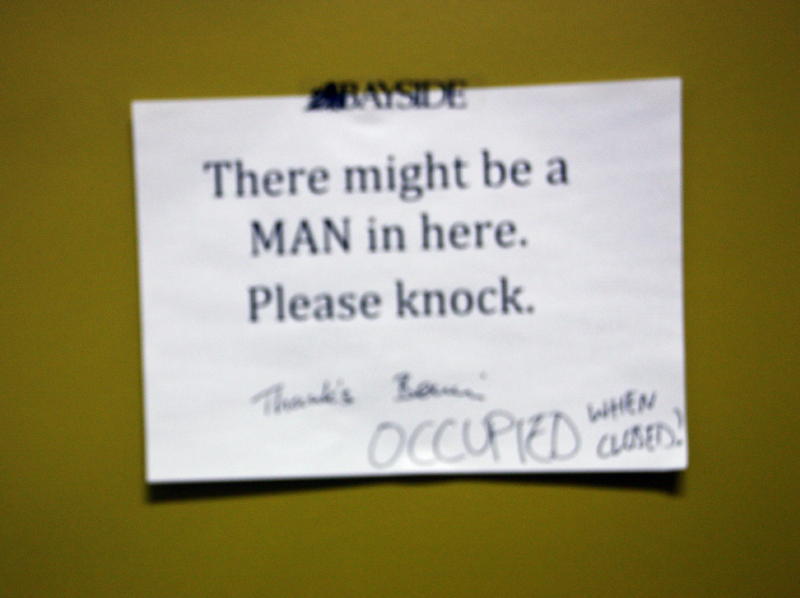 BAYSIDE
There might be a
MAN in here.
Please knock.
Thank's
OCCUPIED WHEN
CLOSED!